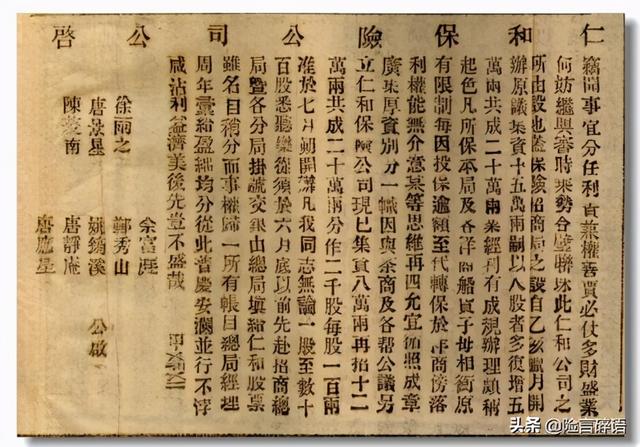 仁和保險公司公啓
竊聞事宜分任利貴兼權善賈必仗多財盛業
何妨繼興審時乘勢合璧聯珠此仁和公司之
所由設也蓋保險招商局之設自乙亥臘月開
辦原議集資十五萬兩嗣以入股者多復增五
萬兩共成二十萬兩業經利有成規辦理頗稱
起色凡所保本局及各洋商船貨子母相衡原
有限制每因投保逾額至代轉保於洋商傍落
利權能無介意某等思維再四允宜倣照成章
廣集厚資別分一幟因與茶商及各幫公議另
立仁和保險公司現已集資八萬兩再招十二
萬兩共成二十萬兩分作二千股每股一百兩
准於七月朔開辦凡我同志無論一股至數十
百股悉聽樂從須於六月底以前先赴招商總
局暨各分局掛號交銀由總局塡給仁和股票
雖名目稍分而事權歸一所有帳目總局經理
周年彙結盈絀均分從此普慶安瀾並行不浮
咸沾利益濟美後先豈不盛哉
徐雨之 余富涯
鄭秀山
唐景星 姚溪
陳菱南 唐靜庵 公啟
唐應星
头条 @险言碎语